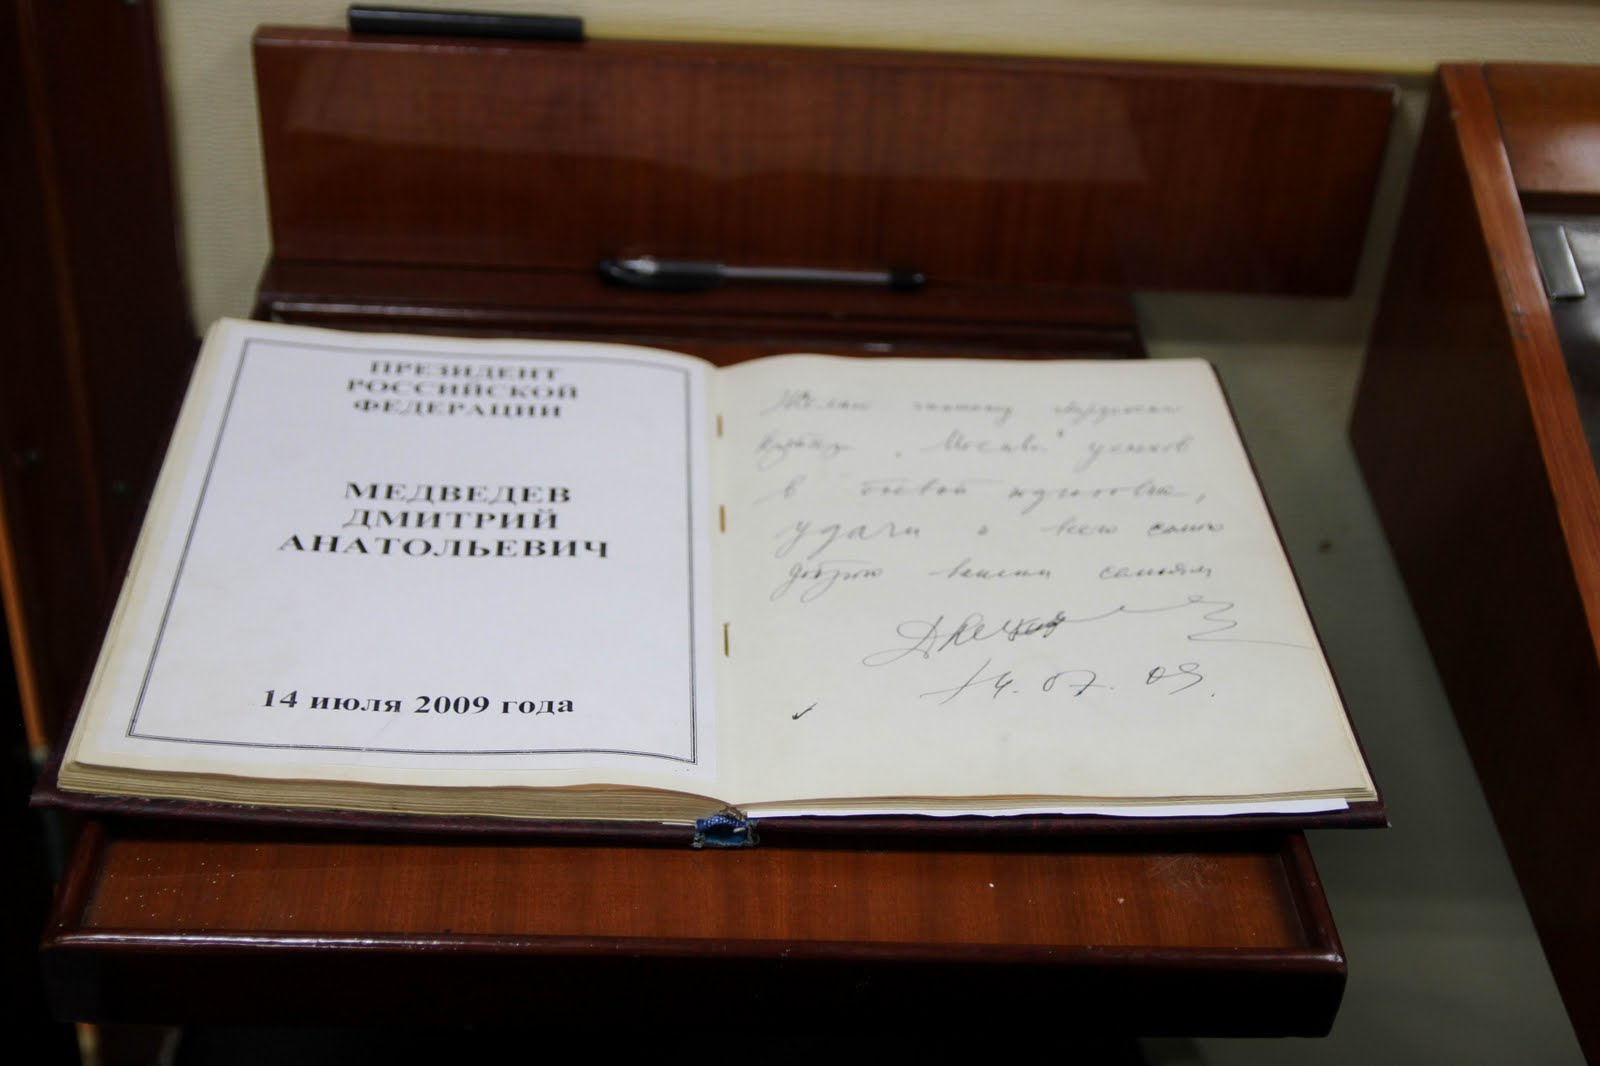 ПРЕЗИДЕНТ
РОССИЙСКОЙ
ФЕДЕРАЦИИ
МЕДВЕДЕВ
ДМИТРИЙ
АНАТОЛЬЕВИЧ
14 июля 2009 года
Желаю экипажу
"Москва" успехов
в боевой подготовке,
удачи и всего самого
доброго вашим семьям
14.07.09.